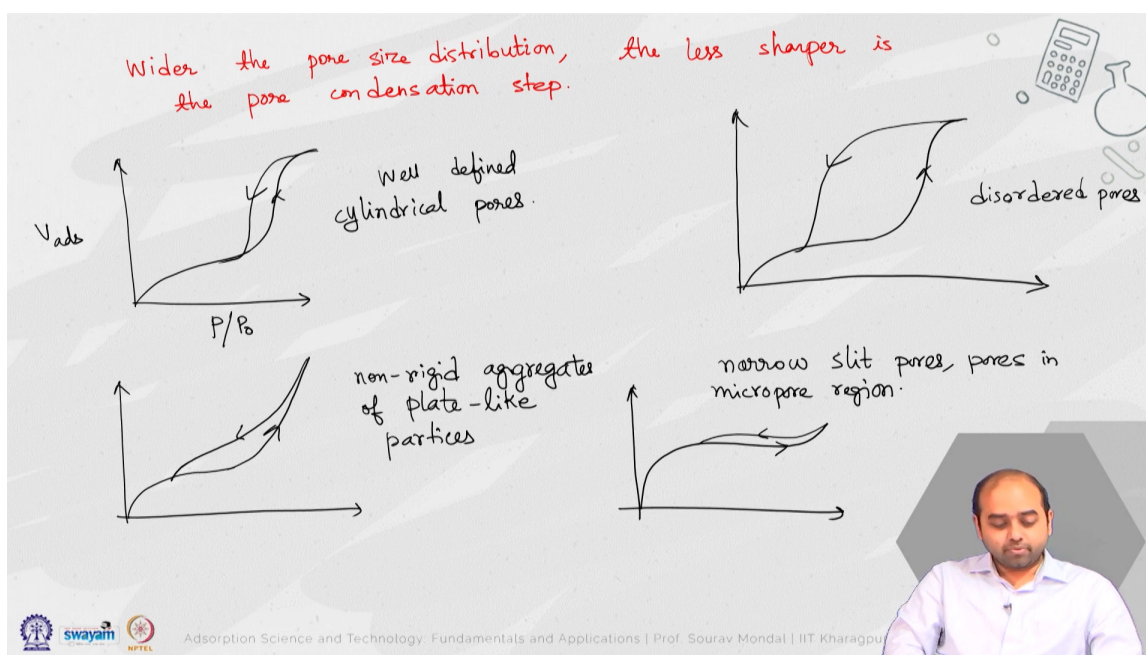 Wider the pore size distribution, the less sharper is
the pore condensation step.
Vads
P/P0
Well defined
cylindrical pores.
disordered pores
non-rigid aggregates
of plate-like
partices
narrow slit pores, pores in
micropore region.
swayam
NPTEL
Adsorption Science and Technology: Fundamentals and Applications | Prof. Sourav Mondal | IIT Kharagpur